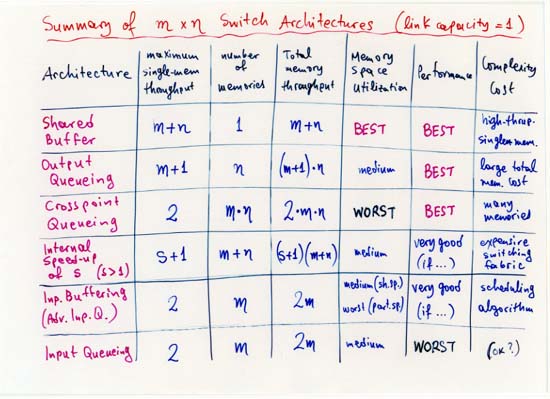 Summary of m x n Switch Architectures (link capacity = 1)
Architecture
maximum
single-mem
throughput
number
of
memories
Total
memory
throughput
Memory
Space
Utilization
Performance
Complexity
Cost
Shared
Buffer
m+n
1
m+n
BEST
BEST
high-thrup.
single mem.
Output
Queueing
m+1
n
(m+1)·n
medium
BEST
large total
mem. cost
Crosspoint
Queueing
2
m·n
2·m·n
WORST
BEST
many
memories
Internal
Speed-up
of s (s>1)
s+1
m+n
(s+1)(m+n)
medium
very good
(if ...)
expensive
switching
fabric
Inp. Buffering
(Adv. Inp. Q.)
2
m
2m
medium (sh.sp.)
worst (part.sp)
very good
(if ...)
scheduling
algorithm
Input Queueing
2
m
2m
medium
WORST
(ok?)